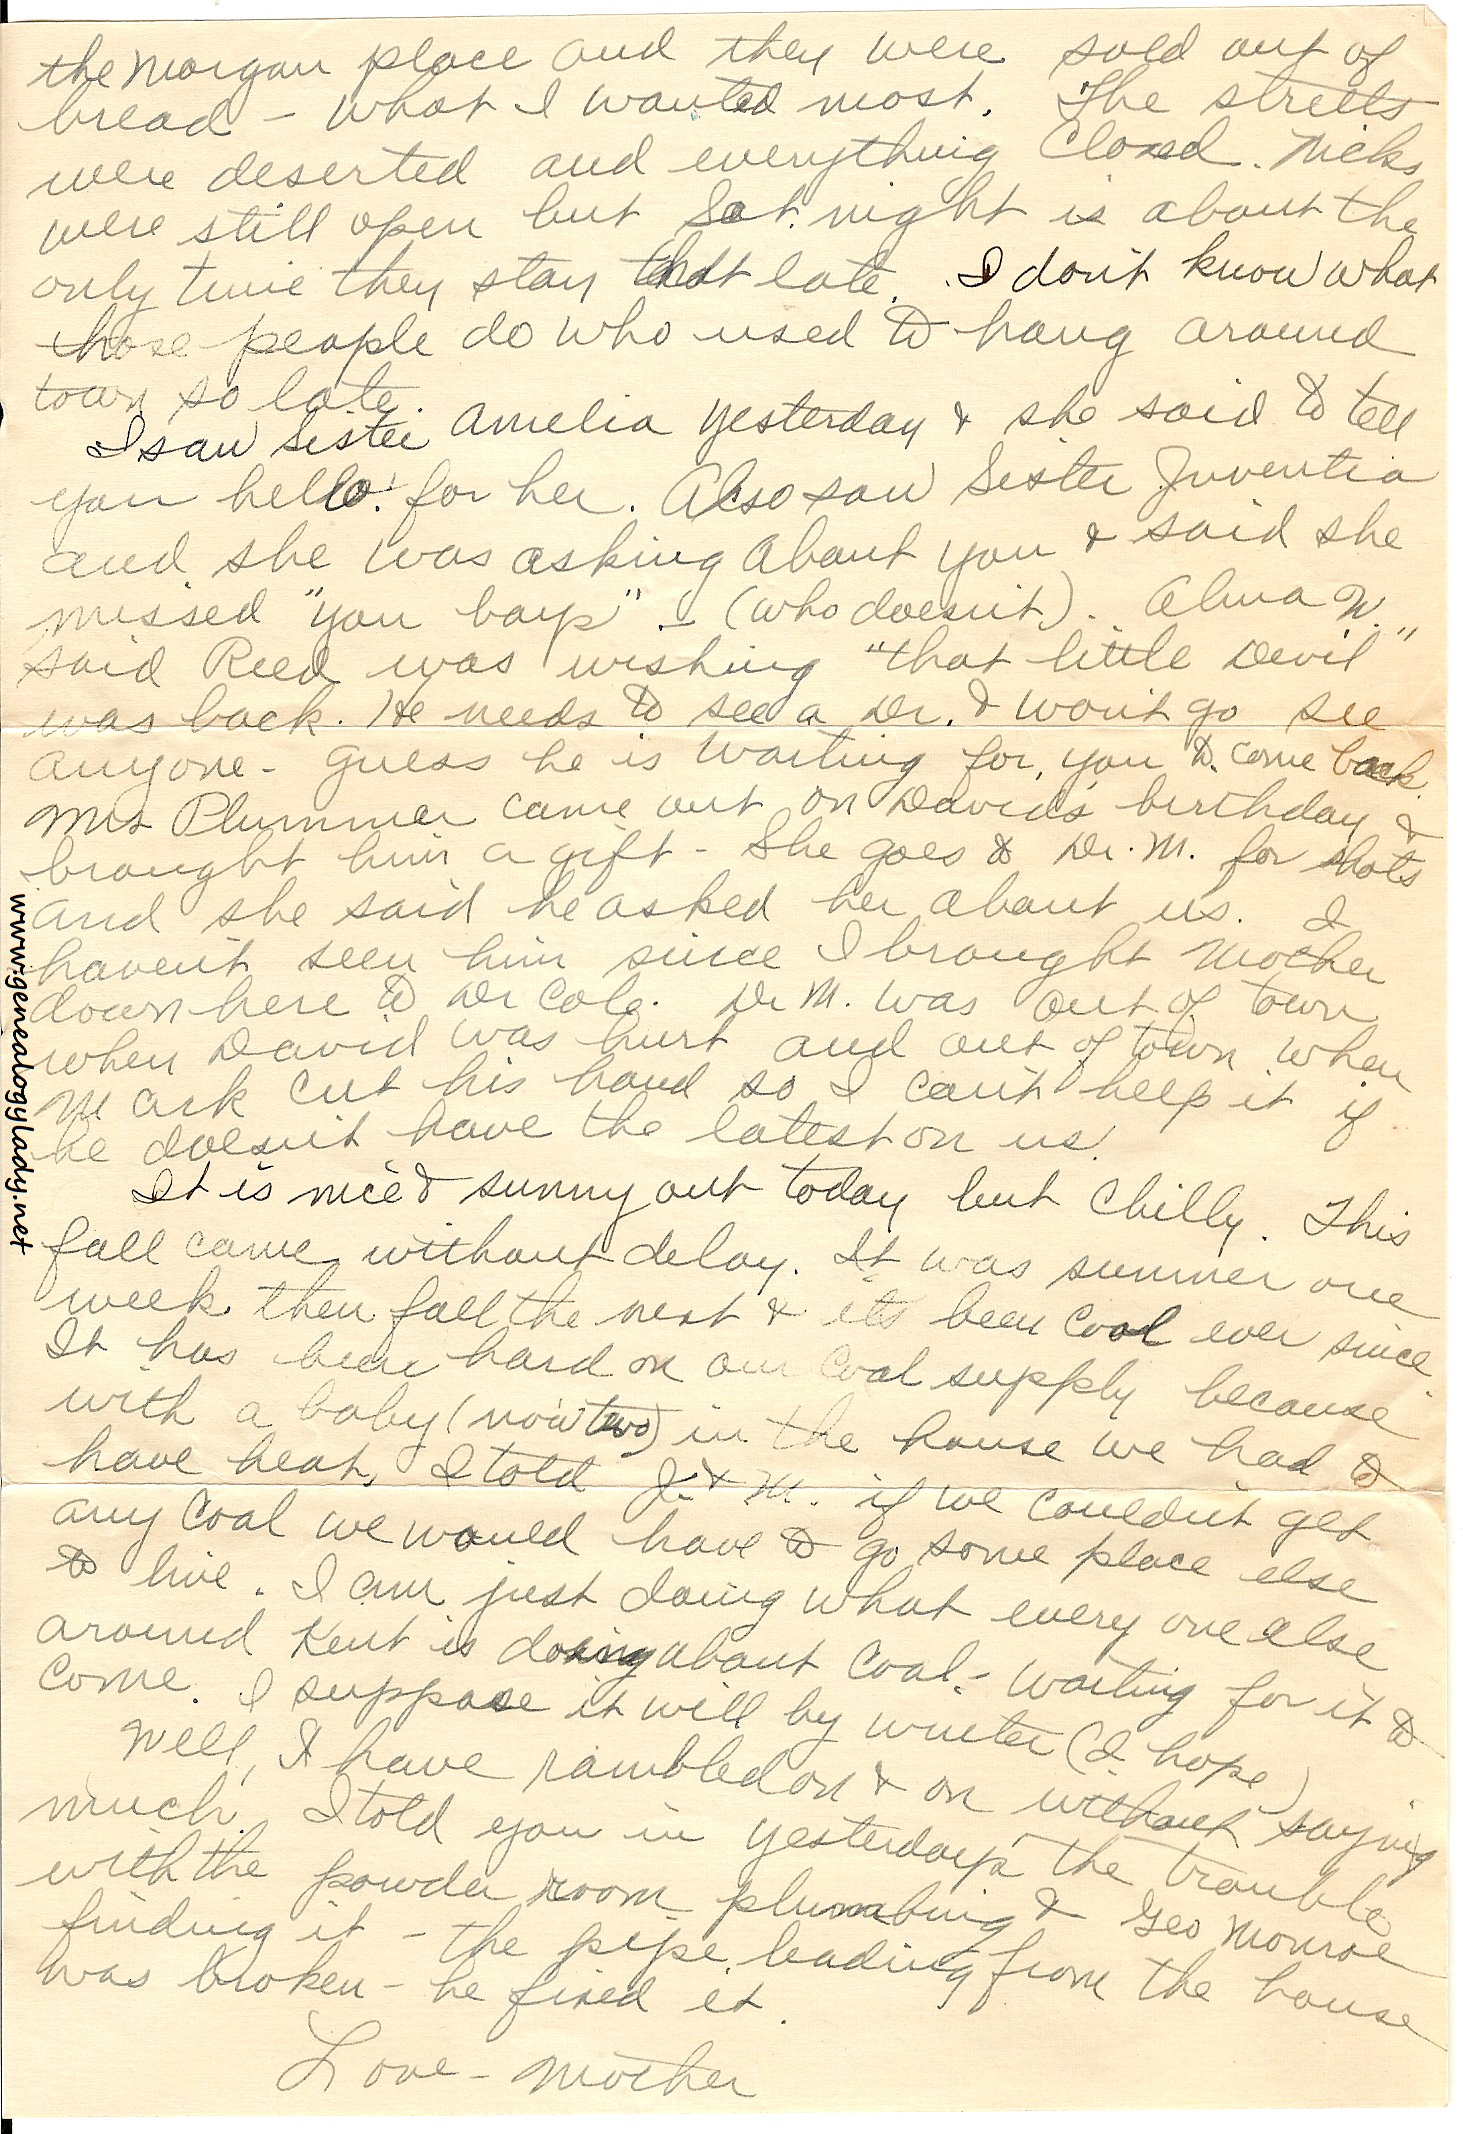 the Morgan place and they were sold out of
bread - what I wanted most. The streets
were deserted and everything closed. Nicks
were still open but Sat. night is about the
only time they stay that late. I don't know what
those people do who used to hang around
town so late.
I saw Sister Amelia yesterday & she said to tell
you hello! for her. Also saw Sister Juventia
and she was asking about you & said she
missed "you boys" - (who doesn't). Alma W.
said Reed was wishing "that little Devil"
was back. He needs to see a Dr. & won't go see
anyone - guess he is waiting for you to come back.
Mrs Plummer came out on David's birthday &
brought him a gift - She goes to Dr. M. for shots
and she said he asked her about us. I
haven't seen him since I brought Mother
down here to Dr Cole. Dr M. was out of town
when David was hurt and out of town when
Mark cut his hand so I can't help it if
he doesn't have the latest on us!
It is nice & sunny out today but chilly. This
fall came without delay. It was summer one
week then fall the next & it's been cool ever since.
It has been hard on our coal supply because
with a baby (now two) in the house we had to
have heat. I told J. & M. if we couldn't get
any coal we would have to go some place else
to live. I am just doing what every one else
around Kent is doing about coal - waiting for it to
come. I suppose it will by winter (I hope)
Well, I have rambled on & on without saying
much. I told you in yesterday's the trouble
with the powder room plumbing & Geo Monroe
finding it - the pipe leading from the house
was broken - he fixed it.
Love - Mother
www.genealogylady.net